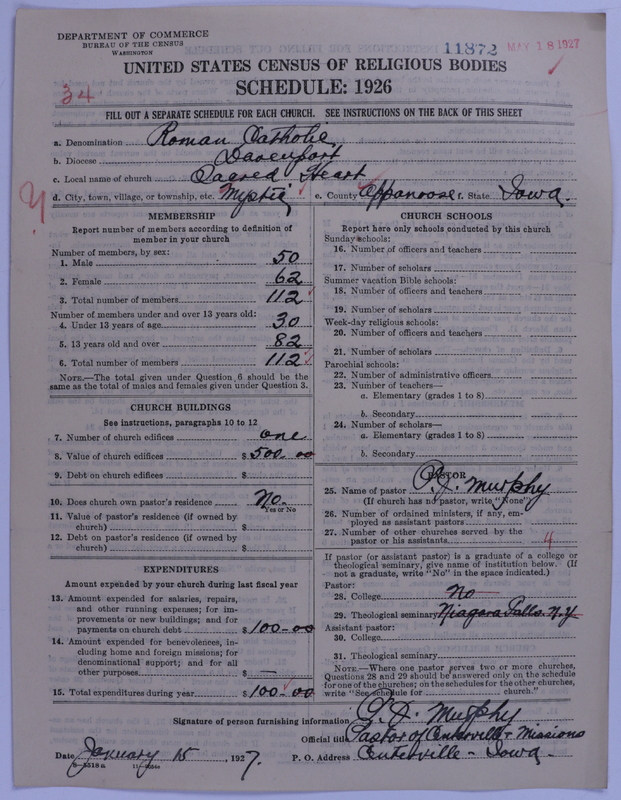 DEPARTMENT OF COMMERCE
BUREAU OF THE CENSUS
WASHINGTON
11872 MAY 18 1927
UNITED STATES CENSUS OF RELIGIOUS BODIES
34
SCHEDULE: 1926
FILL OUT A SEPARATE SCHEDULE FOR EACH CHURCH. SEE INSTRUCTIONS ON THE BACK OF THIS SHEET
a. Denomination Roman Catholic
b. Diocese Davenport
c. Local name of church Sacred Heart
d. City, town, village, or township, etc. Mystic e. County Appanoose f. State Iowa.
MEMBERSHIP
Report number of members according to definition of
member in your church
Number of members, by sex:
1. Male 50
2. Female 62
3. Total number of members 112
Number of members under and over 13 years old:
4. Under 13 years of age 30
5. 13 years old and over 82
6. Total number of members 112
NOTE.—The total given under Question 6 should be
same as the total of males and females given under Question 3.
CHURCH BUILDINGS
See instructions, paragraphs 10 to 12
7. Number of church edifices one
8. Value of church edifices $500.00
9. Debt on church edifices $
10. Does church own pastor's residence No.
Yes or No
11. Value of pastor's residence (if owned by
church) $
12. Debt on pastor's residence (if owned by
church) $
EXPENDITURES
Amount expended by your church during last fiscal year
13. Amount expended for salaries, repairs,
and other running expenses; for im-
provements or new buildings; and for
payments on church debt $100-00
14. Amount expended for benevolences, in-
cluding home and foreign missions; for
denominational support; and for all
other purposes $ —
15. Total expenditures during year $100-00
CHURCH SCHOOLS
Report here only schools conducted by this church
Sunday schools:
16. Number of officers and teachers
17. Number of scholars
Summer vacation Bible schools:
18. Number of officers and teachers
19. Number of scholars
Week-day religious schools:
20. Number of officers and teachers
21. Number of scholars
Parochial schools:
22. Number of administrative officers
23. Number of teachers—
a. Elementary (grades 1 to 8)
b. Secondary
24. Number of scholars—
a. Elementary (grades 1 to 8)
b. Secondary
PASTOR
25. Name of pastor P.J. Murphy
(If church has no pastor, write "None")
26. Number of ordained ministers, if any, em-
ployed as assistant pastors
27. Number of other churches served by the
pastor or his assistants 4
If pastor (or assistant pastor) is a graduate of a college or
theological seminary, give name of institution below. (If
not a graduate, write "No" in the space indicated.)
Pastor:
28. College No
29. Theological seminary Niagara Falls. N.Y
Assistant pastor:
30. College
31. Theological seminary
NOTE.—Where one pastor serves two or more churches,
Questions 28 and 29 should be answered only on the schedule
for one of the churches; on the schedules for the other churches,
write "See schedule for church."
Signature of person furnishing information P.J. Murphy
Official title Pastor of Centerville + Missions
Date January 15, 1927. P. O. Address Centerville - Iowa -